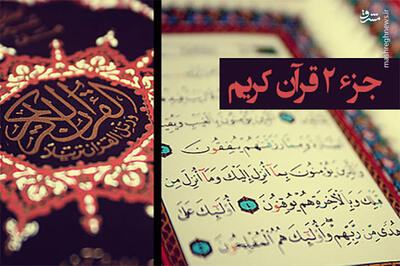 مشرق
mashreghnews.ir
جزء ۲ قرآن کریم
القرآن الكريم
ورتل القرآن ترتيلا
رَزَقْنَٰهُمْ يُنفِقُونَ
يُؤْمِنُونَ بِمَا أُنزِلَ إِلَيْكَ وَمَا أُنزِلَ مِن
قَبْلِكَ وَبِالْآخِرَةِ هُمْ يُوقِنُونَ ٤ أُولَٰئِكَ عَلَىٰ
هُدًى مِّن رَّبِّهِمْ وَأُولَٰئِكَ هُمُ الْمُفْلِحُونَ ٥